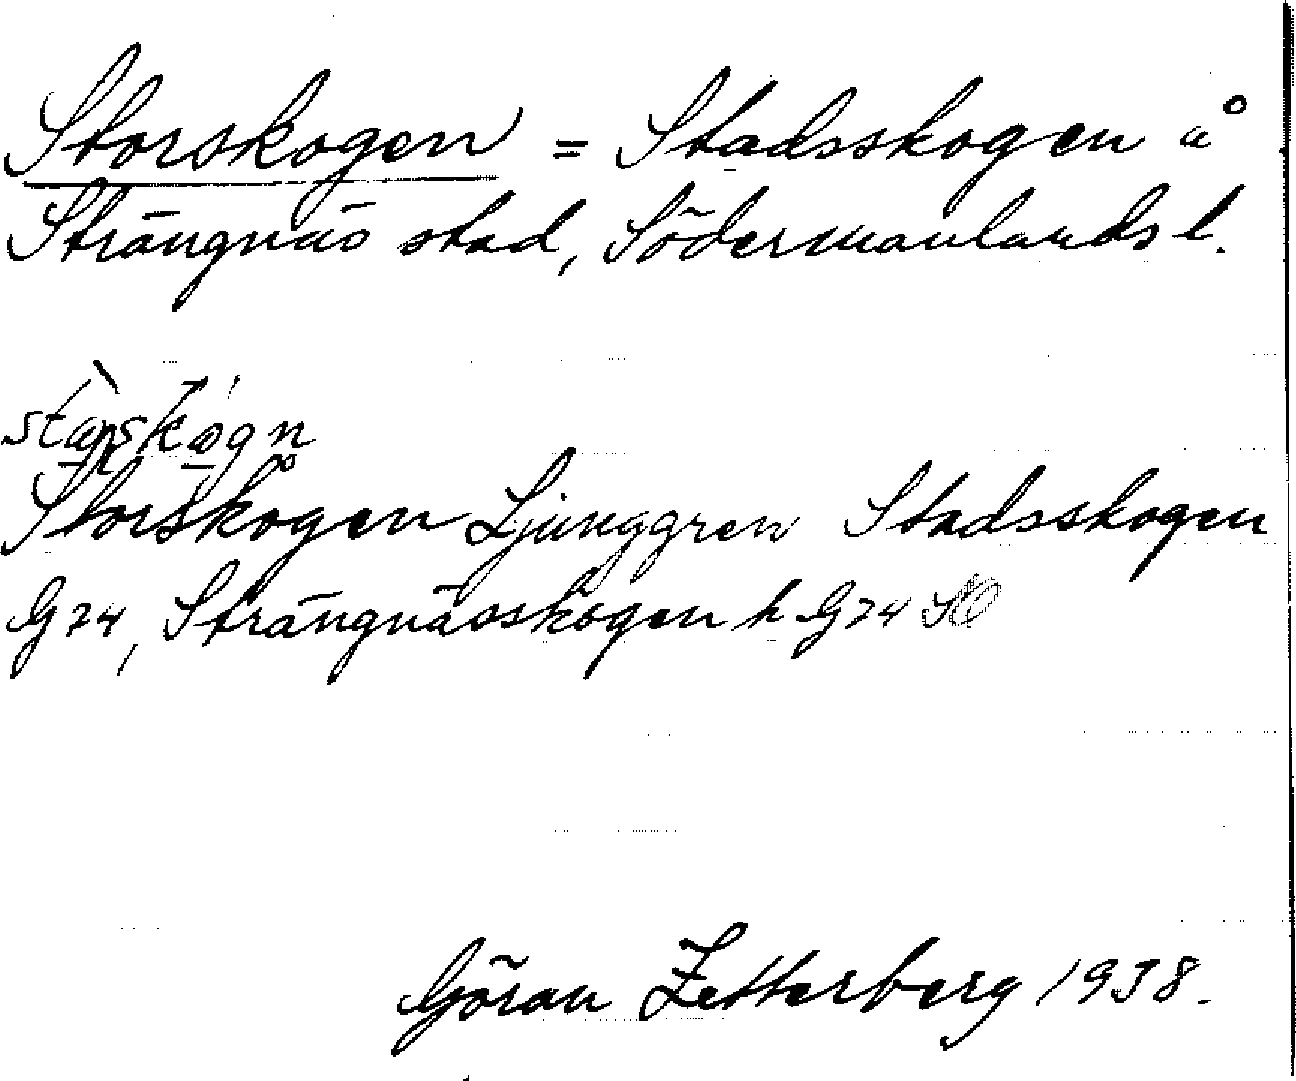 Storskogen = Stadsskogen å
Strängnäs stad, Södermanlands l.
Storskogen Ljunggren Stadsskogen
G74, Strängnässkogen h G74
Göran Zetterberg 1938.